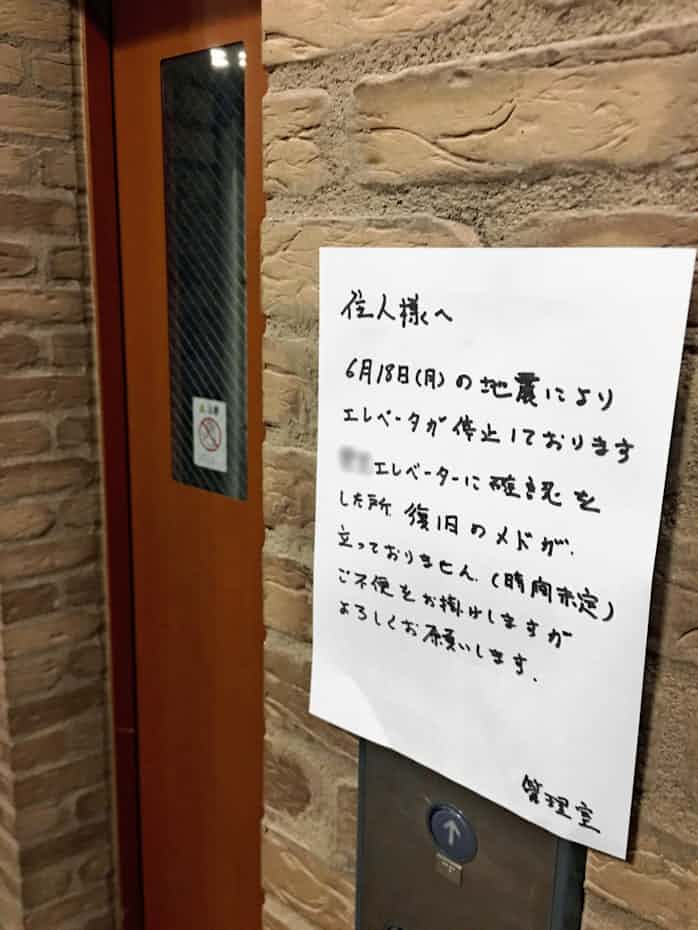 住人様へ
6月18日(月)の地震により
エレベータが停止しております
エレベーターに確認を
した所 復旧のメドが、
立っておりません。(時間未定)
ご不便をお掛けしますが
よろしくお願いします。
管理室